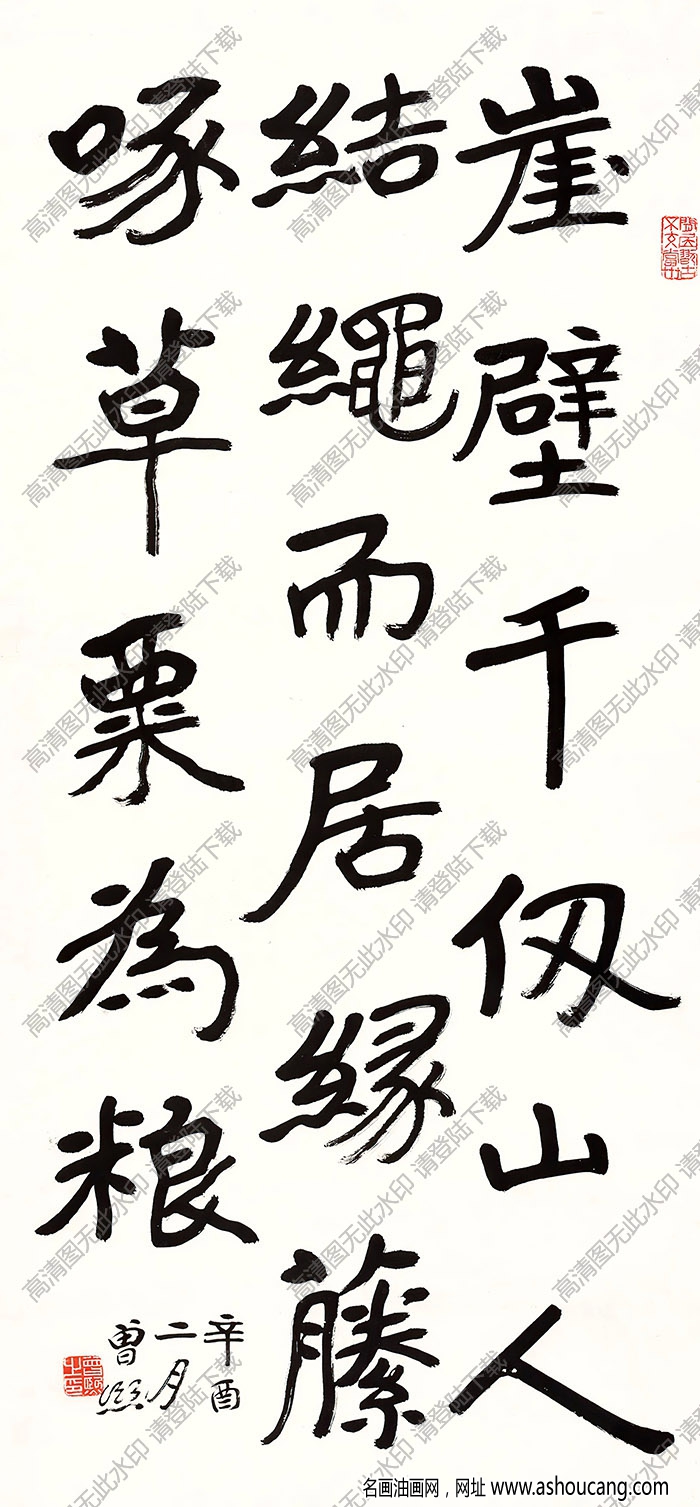 崖壁千仞山人
結繩而居緣藤
啄草粟為粮
辛酉
二月
曾熙
曾熙之印
高清图无此水印 请登陆下载
名画油画网，网址 www.ashoucang.com